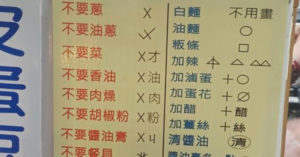 皮蛋
不要蔥 X
不要油蔥
不要菜 X才
不要香油 X油
不要肉燥 X肉
不要胡椒粉 X粉
不要醬油膏 X
不要餐具
白麵 不用畫
油麵 ○
粄條 □
加辣 △ △△
加滷蛋 +○
加蛋花 +◇
加醋 +醋
加薑絲 +絲
清醬油 清